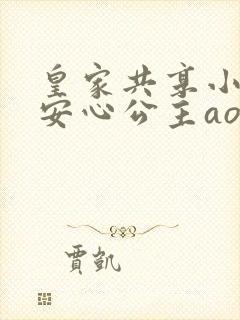 皇家共享小
安心公主ao
贾凯